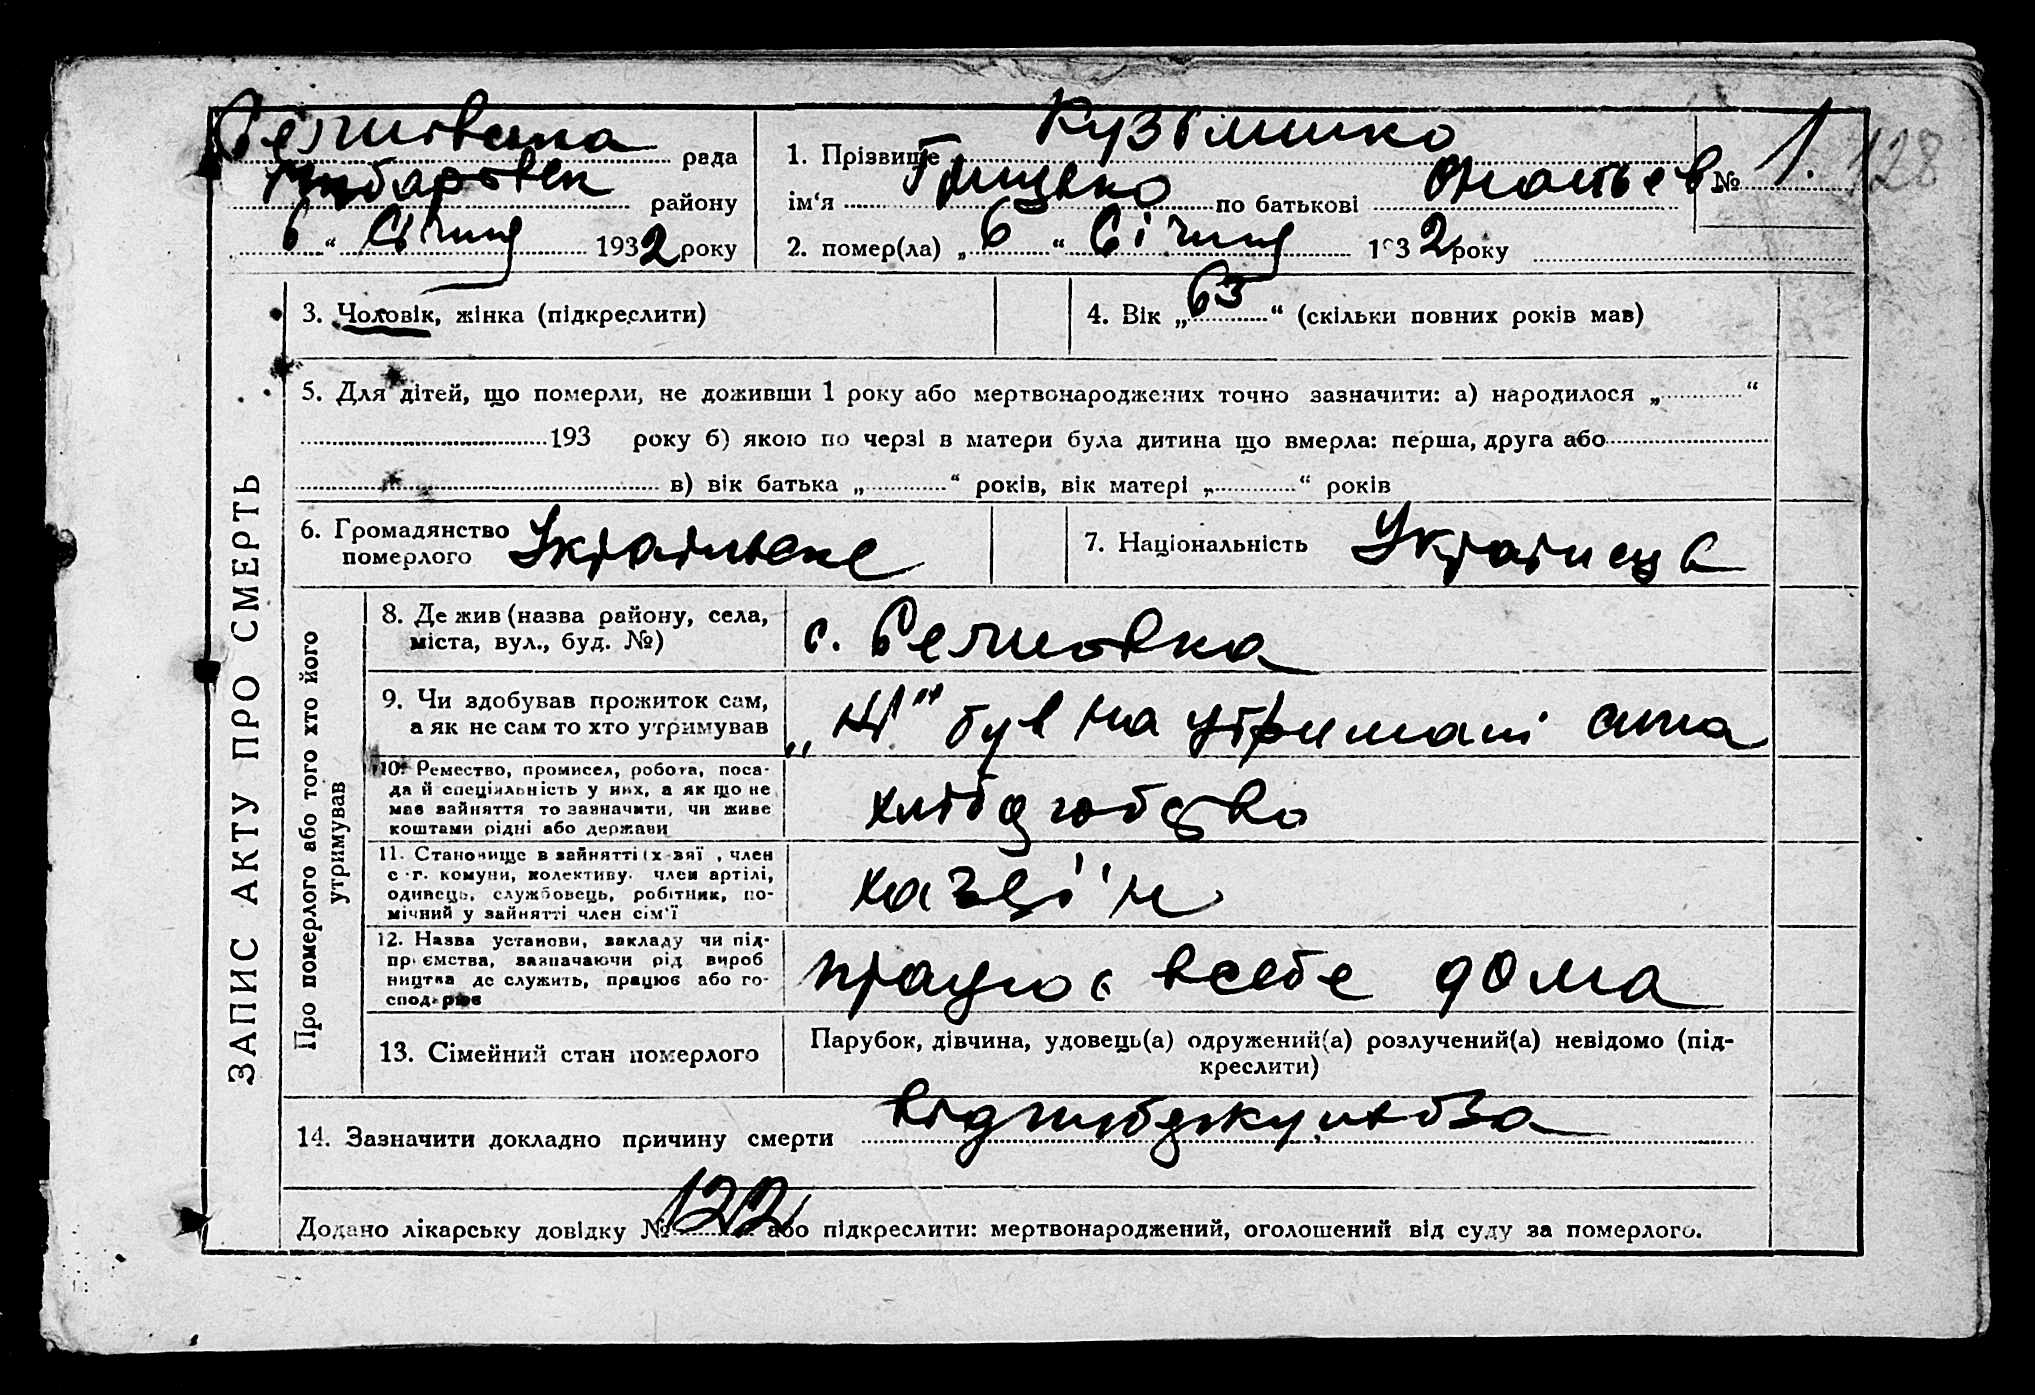 рада
району
1. Прізвище Кузьминко
№ 1. 128
ім'я Грицько по батькові
6 “ Січня 1932 року
2. помер(ла) „ 6 “ Січня 1932 року
3. Чоловік, жінка (підкреслити)
4. Вік „ 63 “ (скільки повних років мав)
5. Для дітей, що померли, не доживши 1 року або мертвонароджених точно зазначити: а) народилося „ “
193 року б) якою по черзі в матери була дитина що вмерла: перша, друга або
в) вік батька „ “ років, вік матері „ “ років
6. Громадянство
померлого Українське
7. Національність Українець
ЗАПИС АКТУ ПРО СМЕРТЬ
Про померлого або того хто його
утримував
8. Де жив (назва району, села,
міста, вул., буд. №)
с.
9. Чи здобував прожиток сам,
а як не сам то хто утримував
„Ні“ був на утримані сина
10. Ремество, промисел, робота, поса-
да й спеціяльність у них, а як що не
має зайняття то зазначити, чи живе
коштами рідні або держави
хлібороб
11. Становище в зайнятті (х зяї , член
с.-г. комуни, колективу, член артілі,
одинець, службовець, робітник, по-
мічний у зайнятті член сім'ї
хазяїн
12. Назва установи, закладу чи під-
приємства, зазначаючи рід вироб
ництва де служить, працює або го-
сподарює
працює в себе дома
13. Сімейний стан померлого
Парубок, дівчина, удовець(а) одружений(а) розлучений(а) невідомо (під-
креслити)
14. Зазначити докладно причину смерти
Додано лікарську довідку № 122 або підкреслити: мертвонароджений, оголошений від суду за померлого.